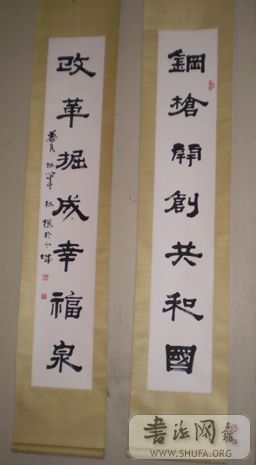 鋼槍開創共和國
改革掘成幸福泉
書法网
WWW.SHUFA.ORG